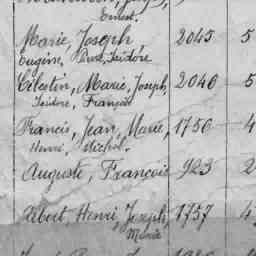 Ernest.
Marie, Joseph 2045 5
Eugène, Isidore
Célestin, Marie, Joseph, 2046 5
Isidore, François
Francis, Jean, Marie, 1756 4
Henri, Michel.
Auguste, François 923 2
Albert, Henri, Joseph, 1757 4
Marie